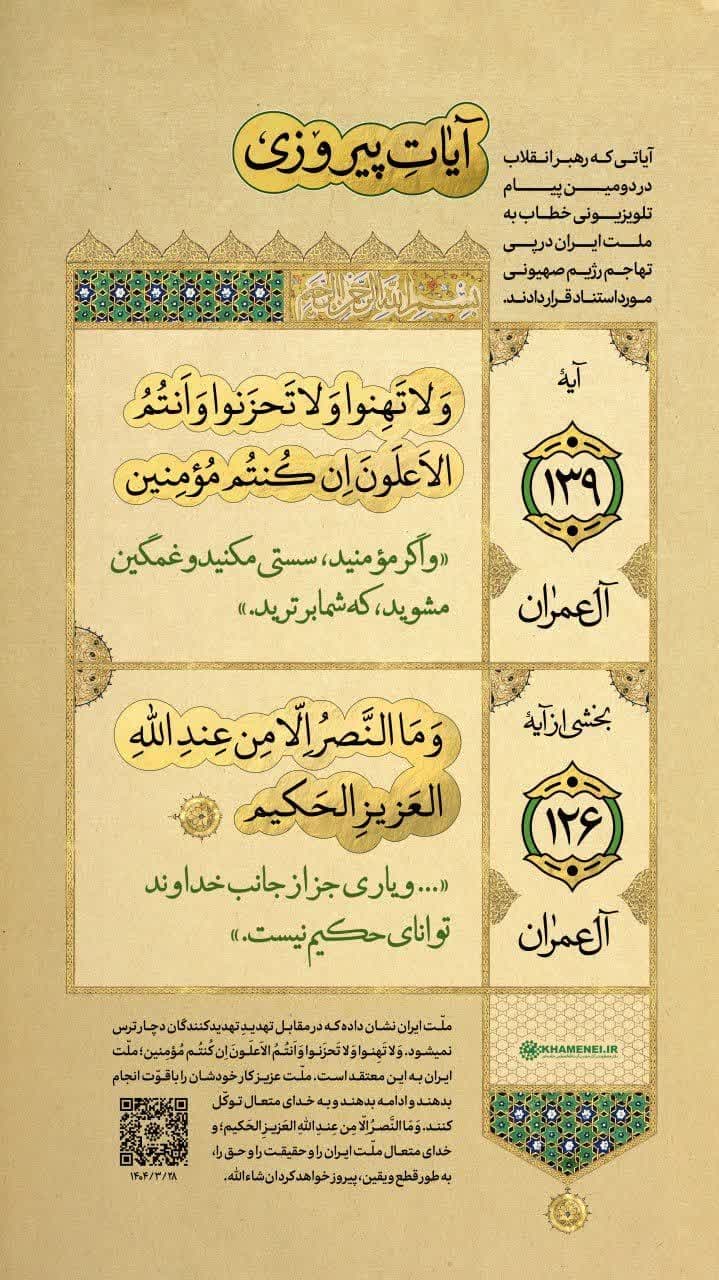 آیاتِ پیروزی
آیاتی که رهبر انقلاب
در دومین پیام
تلویزیونی خطاب به
ملت ایران در پی
تهاجم رژیم صهیونی
مورد استناد قرار دادند.
بسم الله الرحمن الرحیم
آیهٔ
۱۳۹
آل عمران
وَلا تَهِنوا وَلا تَحزَنوا وَاَنتُمُ
الاَعلَونَ اِن کُنتُم مُؤمِنین
«و اگر مؤمنید، سستی مکنید و غمگین
مشوید، که شما برترید.»
بخشی از آیهٔ
۱۲۶
آل عمران
وَمَا النَّصرُ اِلّا مِن عِندِ اللهِ
العَزیزِ الحَکیم
«... و یاری جز از جانب خداوند
توانای حکیم نیست.»
KHAMENEI.IR
ملّت ایران نشان داده که در مقابل تهدیدِ تهدیدکنندگان دچار ترس
نمیشود. وَلا تَهِنوا وَلا تَحزَنوا وَاَنتُمُ الاَعلَونَ اِن کُنتُم مُؤمِنین؛ ملّت
ایران به این معتقد است. ملّت عزیز کار خودشان را با قوّت انجام
بدهند و ادامه بدهند و به خدای متعال توکّل
کنند. وَمَا النَّصرُ اِلّا مِن عِندِ اللهِ العَزیزِ الحَکیم؛ و
خدای متعال ملّت ایران را و حقیقت را و حق را،
به طور قطع و یقین، پیروز خواهد کرد ان شاءالله.
۱۴۰۴/۳/۲۸